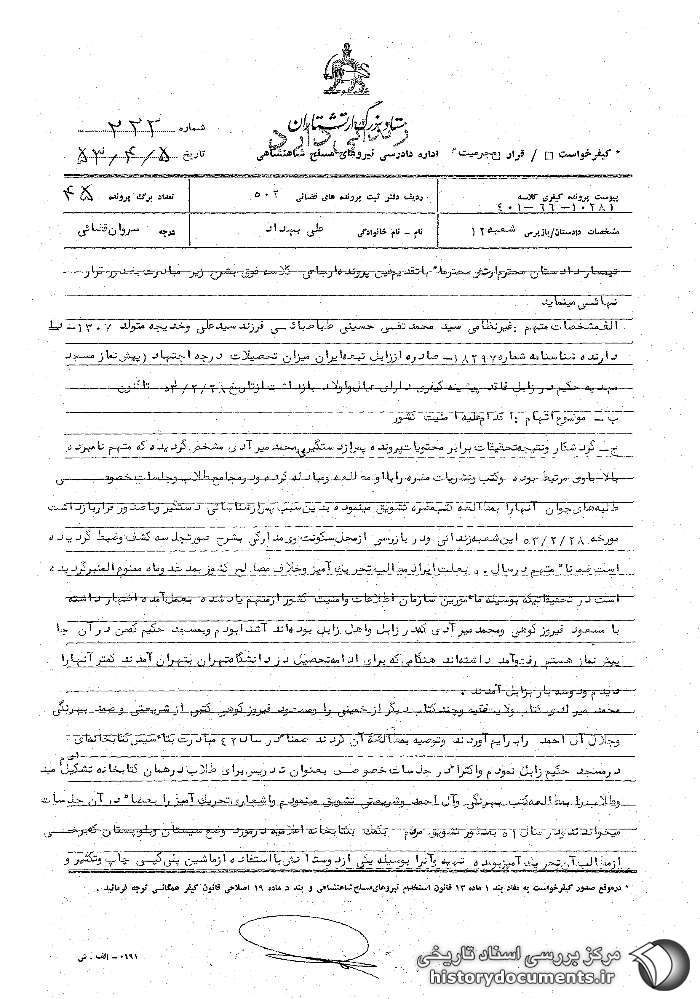 ستاد بزرگ ارتشتاران
شماره ۲۳۳
تاریخ ۵۳/۴/۵
* کیفرخواست □ / قرار □ مجرمیت * اداره دادرسی نیروهای مسلح شاهنشاهی
پیوست پرونده کیفری کلاسه ۱۰۲۸۱-۶۶-۴۰۱
ردیف دفتر ثبت پرونده های قضائی ۵۰۲
تعداد برگ پرونده ۴۵
مشخصات دادستان/بازپرس شعبه ۱۲
نام - نام خانوادگی علی بیداد
درجه سروان قضائی
تیمسار دادستان محترم ارتش محترما" با تقدیم عین پرونده ارجاعی کلاسه فوق بشرح زیر مبادرت بصدور قرار
نهائی مینماید
الف مشخصات متهم : غیرنظامی سید محمد تقی حسینی طباطبائی فرزند سید علی وخدیجه متولد ۱۳۰۷
دارنده شناسنامه شماره ۱۸۲۹۷ صادره از زابل تبعه ایران میزان تحصیلات درجه اجتهاد (پیش نماز مسجد
حکیم در زابل فاقد پیشینه کیفری دارای عیال واولاد بازداشت از تاریخ ۵۳/۲/۲۸ تاکنون
ب - موضوع اتهام : اقدام علیه امنیت کشور
ج - گردشکار ونتیجه تحقیقات برابر محتویات پرونده پس از دستگیری محمد میر آدی مشخص گردیده که متهم نامبرده
بالا باوی مرتبط بوده وکتب ونشریات مضره رابا او مطالعه ومبادله کرده ودرمجامع طلاب وجلسات خصوصی
طلبه های جوان آنها را بمطالعه کتب مضره تشویق مینموده بدین سبب پس از شناسائی دستگیر وباصدور قرار بازداشت
مورخه ۵۳/۲/۲۸ این شعبه زندانی ودر بازرسی ازمحل سکونت وی مدارکی بشرح صورتجلسه کشف وضبط گردیده
است ضمنا" متهم درسال بعلت ایراد مطالب تحریک آمیز وخلاف مصالح کشور بمدت دوماه ممنوع المنبر گردیده
است در تحقیقاتیکه بوسیله مامورین سازمان اطلاعات وامنیت کشور ازمتهم یادشده بعمل آمده اظهار داشته
با مسعود فیروز کوهی ومحمد میر آدی که در زابل واهل زابل بوده اند آشنا بودم وبمسجد حکیم که من در آن جا
پیش نماز هستم رفت وآمد داشته اند هنگامی که برای ادامه تحصیل در دانشگاه تهران بتهران آمدند کمتر آنها را
میدیدم ودوسه بار بزابل آمدند .
محمد میر آدی کتاب ولایت فقیه وچند کتاب دیگر از خمینی را ومسعود فیروز کوهی کتبی از شریعتی و صمد بهرنگی
وجلال آل احمد را برایم آوردند وتوصیه بمطالعه آن کردند ضمنا درسال ۴۲ مبادرت بتاسیس کتابخانه ای
درمسجد حکیم زابل نمودم واکثرا" در جلسات خصوصی بعنوان تدریس برای طلاب درهمان کتابخانه تشکیل
وطلاب را بمطالعه کتب بهرنگی وآل احمد وشریعتی تشویق مینمودم واشعاری تحریک آمیز را بعضا" در آن جلسات
میخواندند ودر سال ۵۱ بمنظور تشویق مردم بکمک بکتابخانه اعلامیه درمورد وضع سیستان وبلوچستان که برخی
از مطالب آن تحریک آمیز بوده تهیه وآنرا بوسیله یکی از دوستانش با استفاده از ماشین پلی کپی چاپ وتکثیر و
* درموقع صدور کیفرخواست به مفاد بند ۱ ماده ۱۳ قانون استخدام نیروهای مسلح شاهنشاهی و بند د ماده ۱۹ اصلاحی قانون کیفر همگانی توجه فرمائید .
۰۶۹۱ - الف . ش
مرکز بررسی اسناد تاریخی
historydocuments.ir